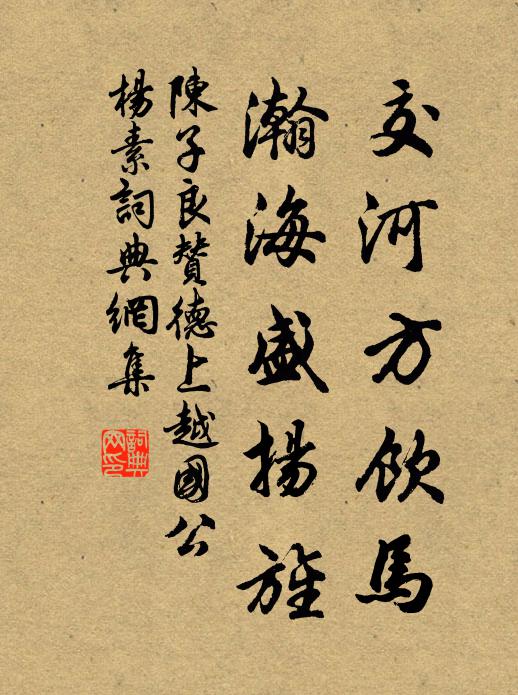 交河方飲馬
瀚海盛揚旌
陳子良贊德上越國公
楊素詞典網集
詞典網印